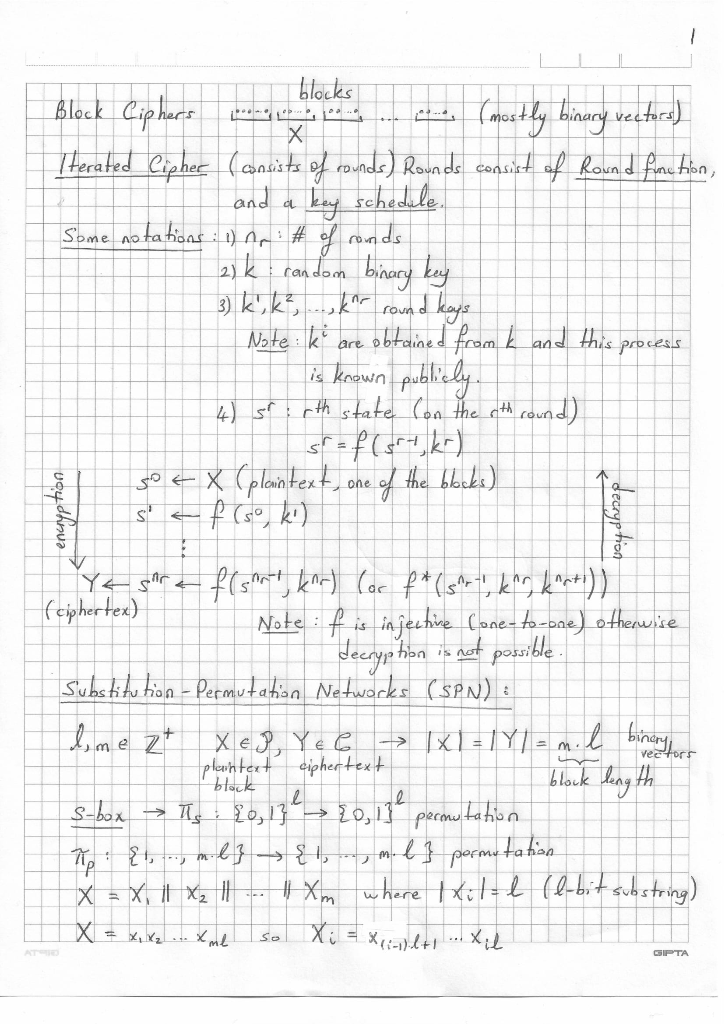 1
blocks
Block Ciphers ... (mostly binary vectors)
X
Iterated Cipher (consists of rounds) Rounds consist of Round function,
and a key schedule.
Some notations : 1) nr : # of rounds
2) k : random binary key
3) k¹, k², ..., k^nr round keys
Note : k^i are obtained from k and this process
is known publicly.
4) s^r : r^th state (on the r^th round)
s^r = f(s^r-1, k^r)
encryption
decryption
s⁰ ← X (plaintext, one of the blocks)
s¹ ← f(s⁰, k¹)
⋮
Y ← s^nr ← f(s^nr-1, k^nr) (or f*(s^nr-1, k^nr, k^nr+1))
(ciphertex)
Note : f is injective (one-to-one) otherwise
decryption is not possible.
Substitution-Permutation Networks (SPN) :
l, m ∈ Z⁺ X ∈ P, Y ∈ C → |X| = |Y| = m.l binary vectors
plaintext block ciphertext block length
s-box → πs : {0,1}^l → {0,1}^l permutation
πp : {1, ..., m.l} → {1, ..., m.l} permutation
X = X₁ || X₂ || ... || Xm where |Xi| = l (l-bit substring)
X = x₁x₂ ... xml so Xi = x(i-1).l+1 ... xil
GIPTA